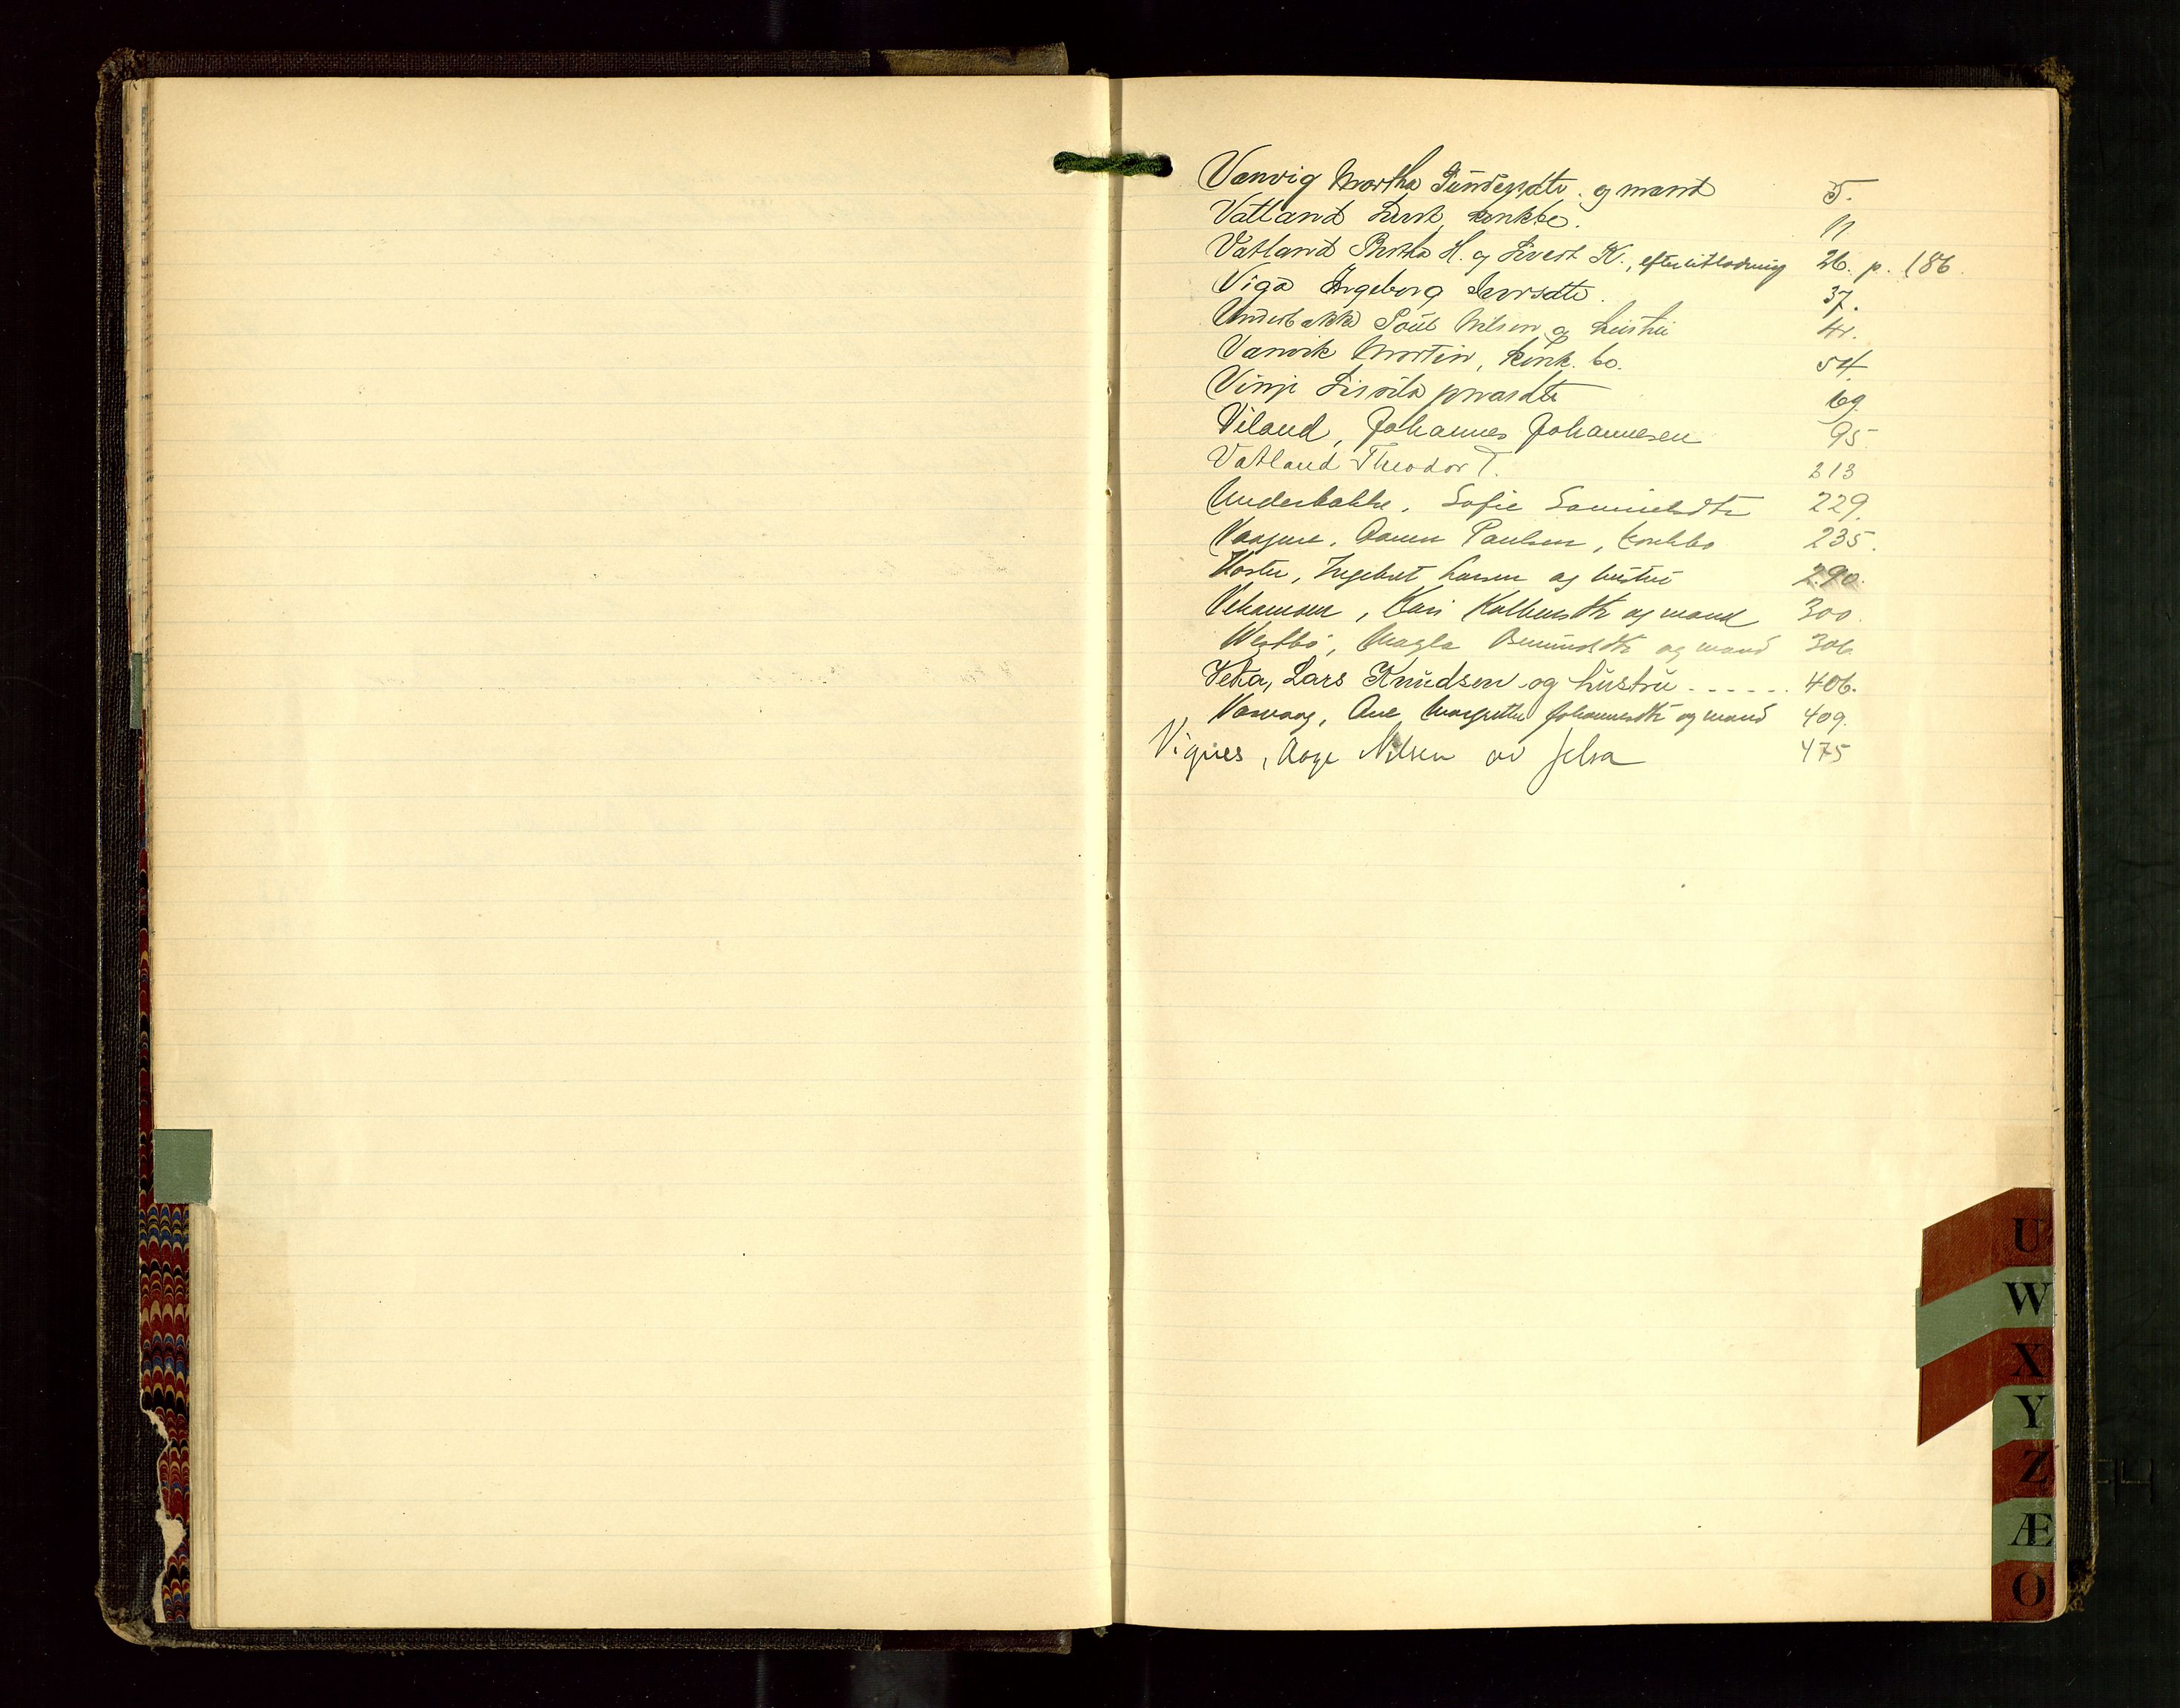 Vanvig Martha Gundersdtr. og mand 5.
Vatland Sivert konkbo. 11
Vatland Bertha H. og Sivert K., efterutlodning 26. p. 186.
Viga Ingeborg Iversdtr. 37.
Underbakke Poul Nilsen og hustru 41.
Vanvik Morten, konk. bo. 54
Vinje 69
Viland, Johannes Johannesen 95
Vatland Theodor T. 213
Underbakke, Sofie Samuelsdtr 229.
Vaagene, Paulsen, konkbo 235.
Ingebret Larsen og hustru 290.
Kari og mand 300.
Vestbø, Magla Osmundsdtr og mand 306
Vetra, Lars Knudsen og hustru ...... 406.
Ane Margrethe Johannesdtr og mand 409.
Vignes, Aage Nilsen av Jelsa 475
U
W
X
Y
Z
Æ
O